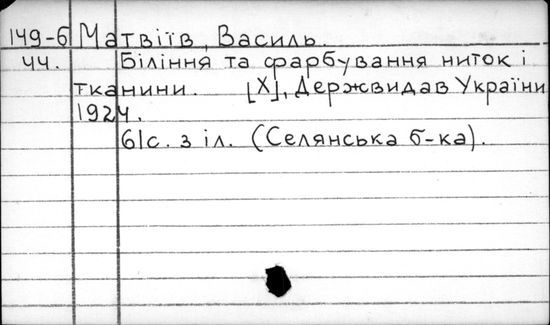 149-б Матвіїв, Василь.
44. Біління та фарбування ниток і
тканини. [X], Держвидав України
1924.
61с. з іл. (Селянська б-ка).